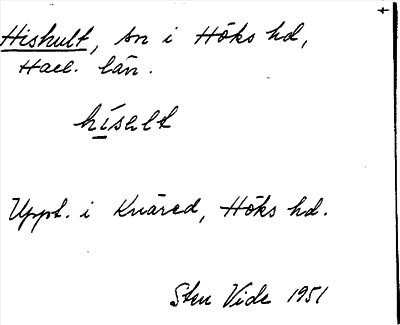 Hishult, sn i Höks hd,
Hall. län.
hísalt
Uppt. i Knäred, Höks hd.
Sten Vide 1951